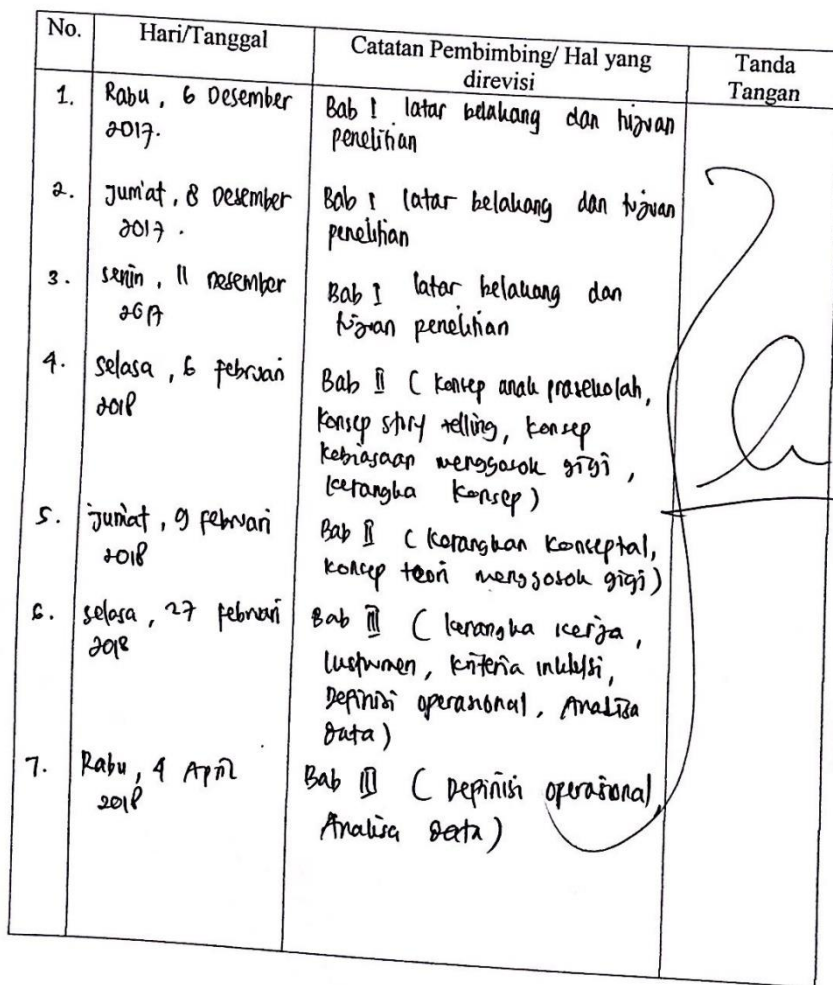 No. Hari/Tanggal Catatan Pembimbing/ Hal yang direvisi Tanda Tangan
1. Rabu, 6 Desember 2017. Bab I latar belakang dan tujuan
penelitian
2. Jum'at, 8 Desember 2017. Bab I latar belakang dan tujuan
penelitian
3. Senin, 11 Desember 2017 Bab I latar belakang dan
tujuan penelitian
4. Selasa, 6 Februari 2018 Bab II (Konsep anak prasekolah,
konsep story telling, konsep
kebiasaan menggosok gigi,
kerangka konsep)
5. Jum'at, 9 Februari 2018 Bab II (Korangkan Konseptal,
konsep teori menggosok gigi)
6. Selasa, 27 Februari 2018 Bab III (kerangka kerja,
kriteria inklusi,
Definisi operasional, Analisa
Data)
7. Rabu, 4 April 2018 Bab III (Depinisi operasional,
Analisa Data)